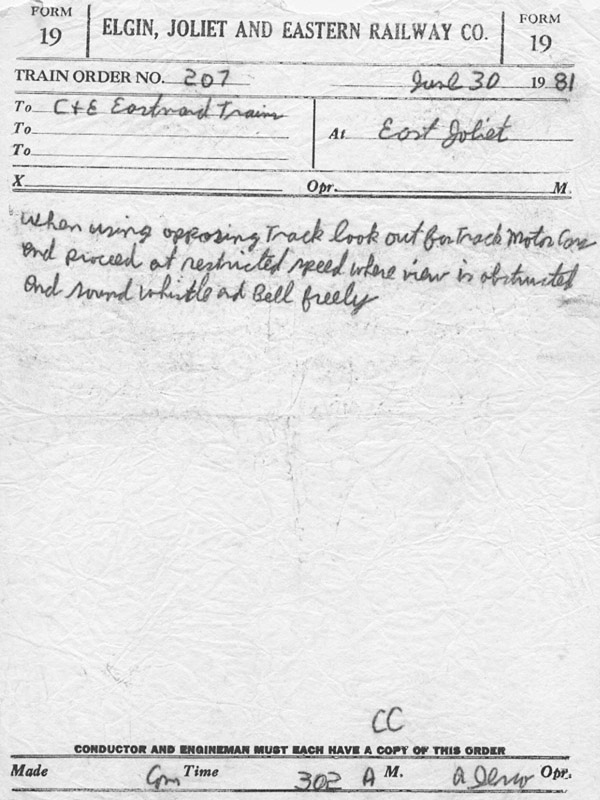 FORM 19 ELGIN, JOLIET AND EASTERN RAILWAY CO. FORM 19
TRAIN ORDER NO. 207 June 30 1981
To C+E Eastward Trains
To At East Joliet
To
X Opr. M.
When using opposing Track look out for Track Motor Cars
and proceed at restricted speed where view is obstructed
and sound whistle and Bell freely
CC
CONDUCTOR AND ENGINEMAN MUST EACH HAVE A COPY OF THIS ORDER
Made Com Time 302 A M. Opr.